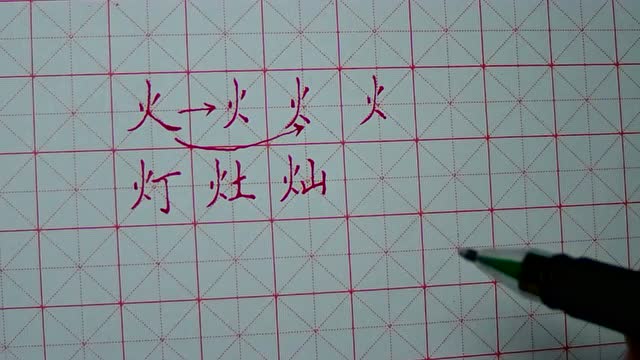 火→火 火 火
灯 灶 灿